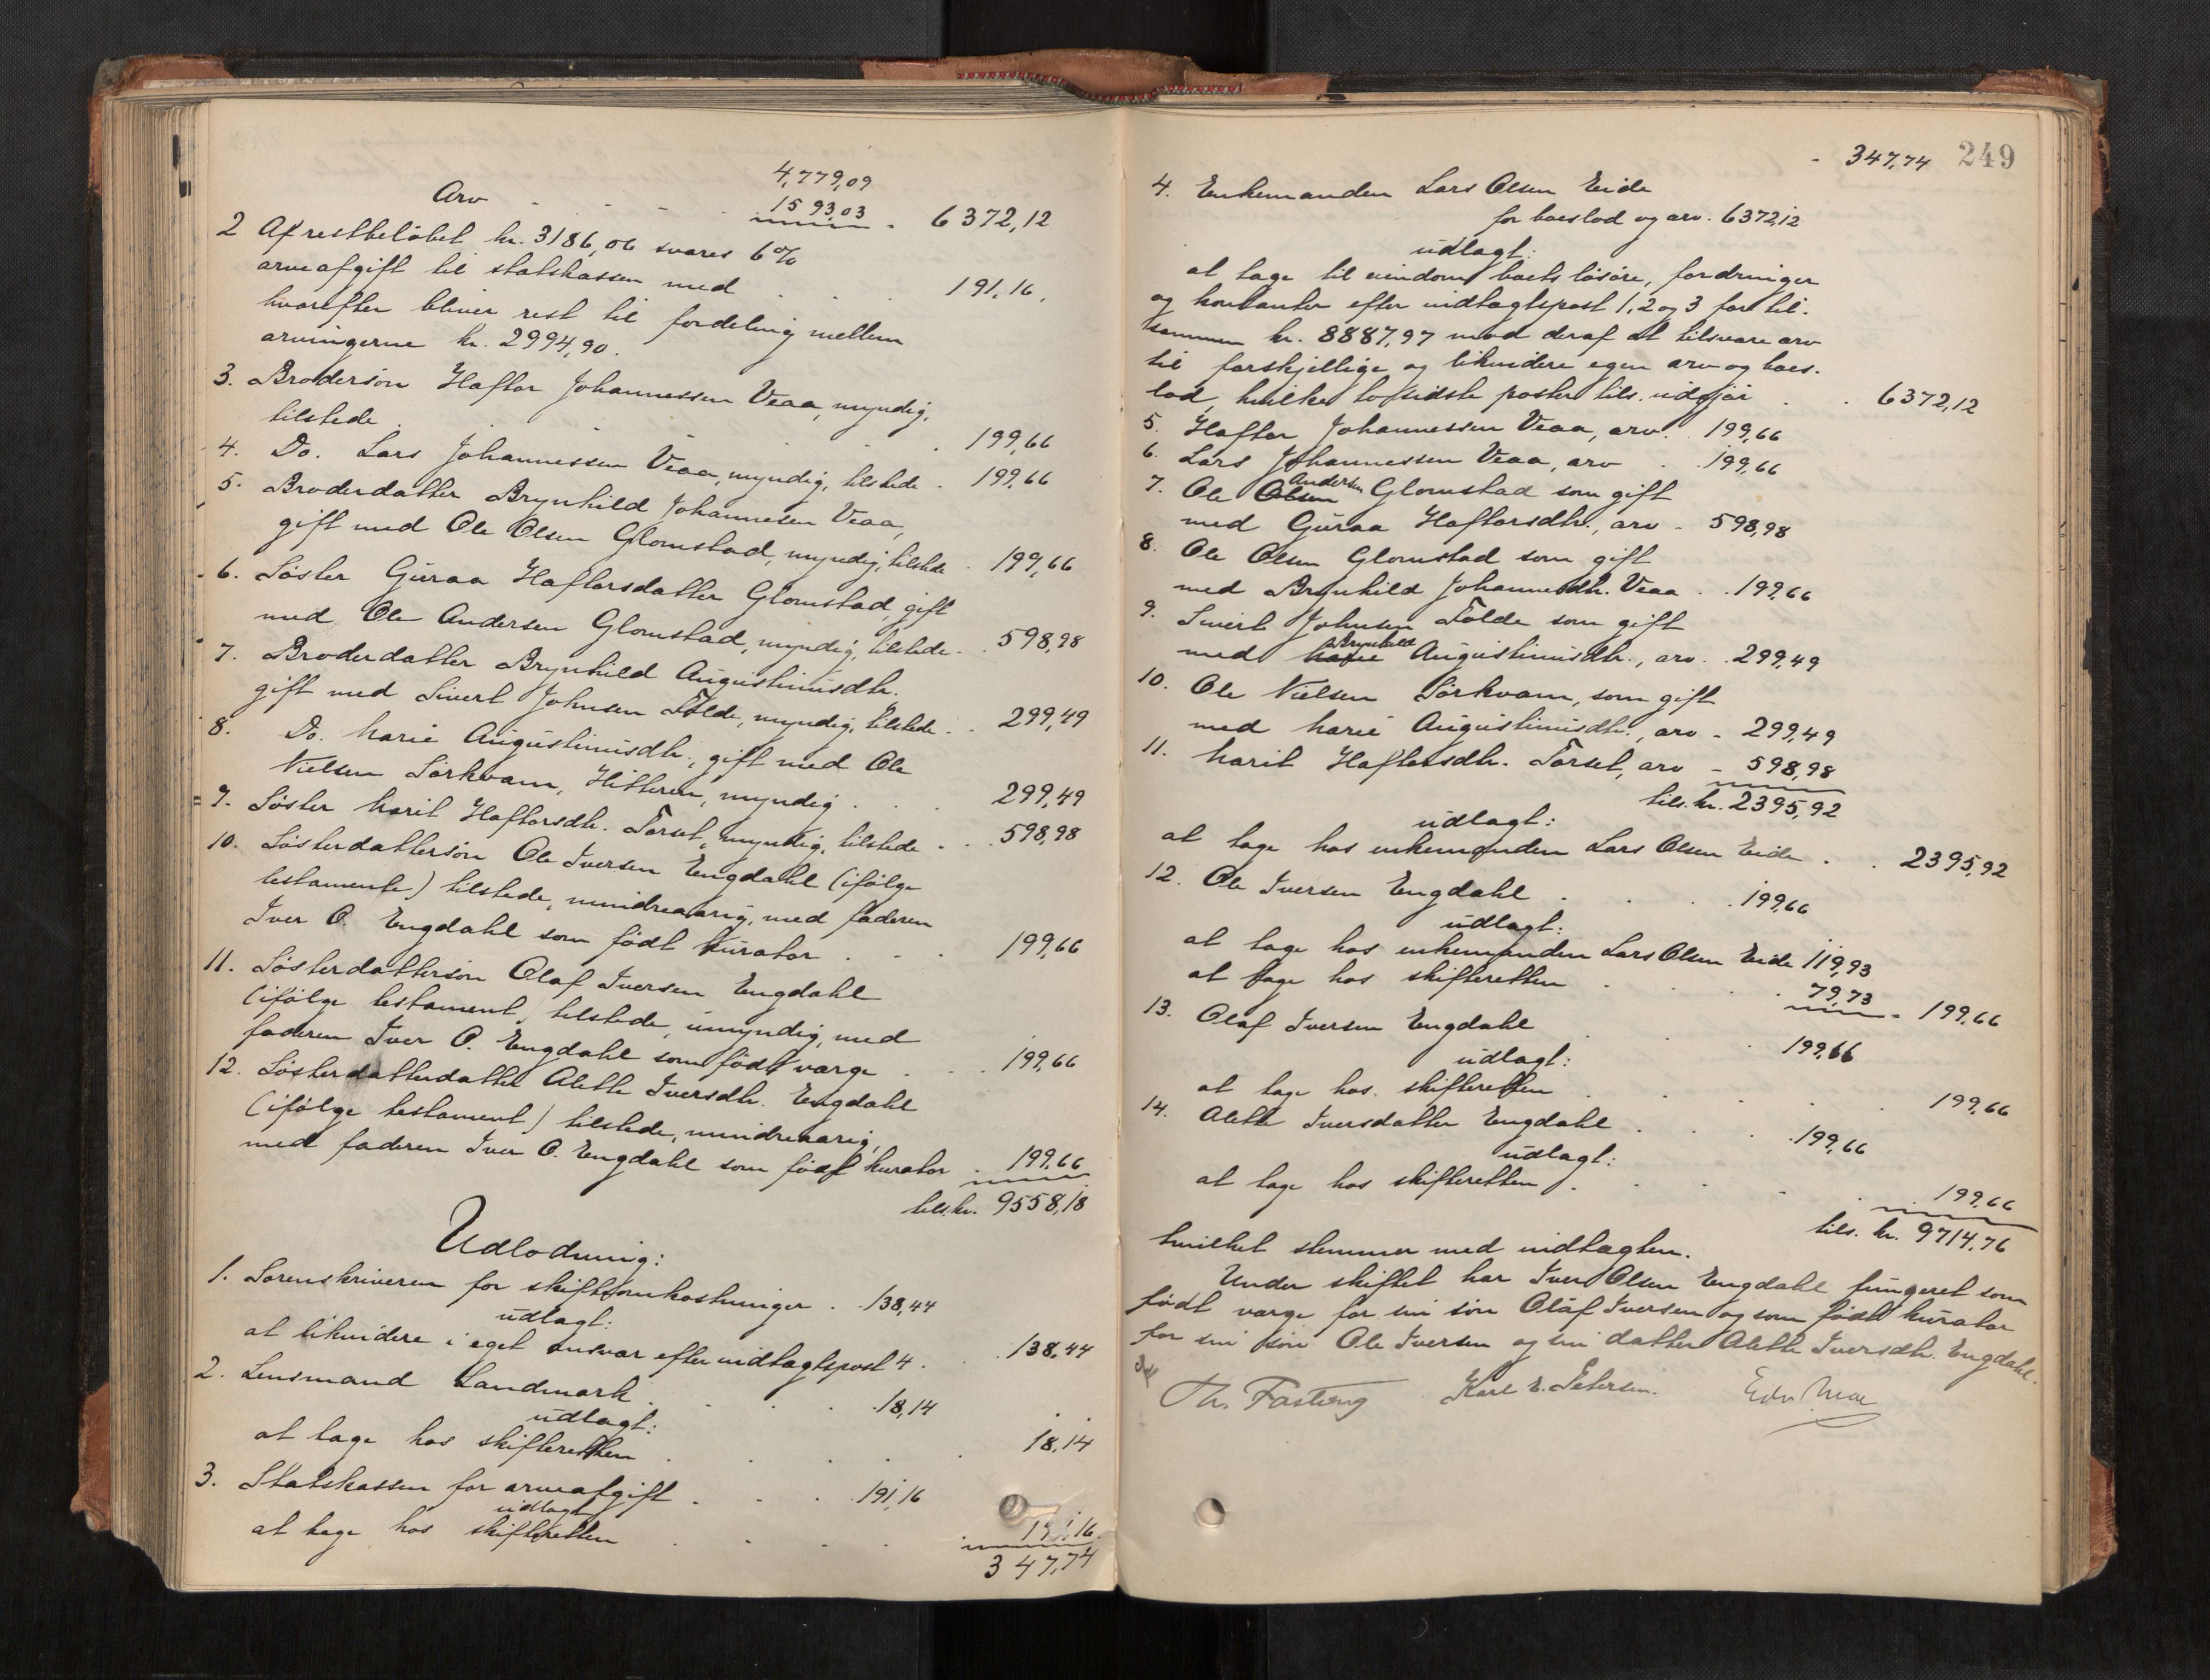 4,779,09
Arv . . . . 1593,03 . 6372,12
2 Af restbeløbet kr. 3186,06 svares 6%
arveafgift til statskassen med . . . 191,16,
hvorefter bliver rest til fordeling mellem
arvingerne kr. 2994,90.
3. Brodersøn Haftor Johannessen Veaa, myndig,
tilstede . . . . 199,66
4. Do. Lars Johannessen Veaa, myndig, tilstede . 199,66
5. Broderdatter Brynhild Johannesen Veaa,
gift med Ole Olsen Glomstad, myndig, tilstede . 199,66
6. Søster Guraa Haftorsdatter Glomstad, gift
med Ole Andersen Glomstad, myndig, tilstede . . 598,98
7. Broderdatter Brynhild Augustinusdtr.
gift med Sivert Johnsen Følde, myndig, tilstede . . 299,49
8. Do. Marie Augustinusdtr., gift med Ole
Nielsen Sørkvam, Hitteren, myndig . . . 299,49
9. Søster Marit Haftorsdtr. Torset, myndig, tilstede . . . 598,98
10. Søsterdattersøn Ole Iversen Engdahl (ifølge
testamente) tilstede, mindreaarig, med faderen
Iver O. Engdahl som født kurator . . . 199,66
11. Søsterdattersøn Olaf Iversen Engdahl
(ifølge testament) tilstede, umyndig, med
faderen Iver O. Engdahl som født værge . . . 199,66
12. Søsterdatterdatter Alette Iversdtr. Engdahl
(ifølge testament) tilstede, mindreaarig,
med faderen Iver O. Engdahl som født kurator . 199,66
tils. kr. 9558,18
Udlodning:
1. Sorenskriveren for skifteomkostninger . . 138,44
udlagt:
at likvidere i eget ansvar efter indtægtspost 4 . . . 138,44
2. Lensmand Landmark . . . . 18,14
udlagt:
at tage hos skifteretten . . . . 18,14
3. Statskassen for arveafgift . . . 191,16
udlagt
at tage hos skifteretten . . . . 191,16.
347,74
- 347,74 249
4. Enkemanden Lars Olsen Eide
for boeslod og arv . 6372,12
udlagt:
at tage til eiendom boets løsøre, fordringer
og kontanter efter indtægtspost 1, 2 og 3 for til-
sammen kr. 8887,97 mod deraf at tilsvare arv
til forskjellige og likvidere egen arv og boes-
lod, hvilke to sidste poster tils. udgjør . . 6372,12
5. Haftor Johannessen Veaa, arv . . 199,66
6. Lars Johannessen Veaa, arv . . 199,66
7. Ole Olsen Andersen Glomstad som gift
med Guraa Haftorsdtr., arv - 598,98
8. Ole Olsen Glomstad som gift
med Brynhild Johannesdtr. Veaa . . 199,66
9. Sivert Johnsen Følde som gift
med Marie Brynhild Augustinusdtr., arv . . 299,49
10. Ole Nielsen Sørkvam, som gift
med Marie Augustinusdtr., arv - 299,49
11. Marit Haftorsdtr. Torset, arv - 598,98
tils. kr. 2395,92
udlagt:
at tage hos enkemanden Lars Olsen Eide . . 2395,92
12. Ole Iversen Engdahl . . . . 199,66
udlagt:
at tage hos enkemanden Lars Olsen Eide 119,93
at tage hos skifteretten . . . 79,73 . 199,66
13. Olaf Iversen Engdahl . . 199,66
udlagt:
at tage hos skifteretten . . . . 199,66
14. Alette Iversdatter Engdahl . . . . 199,66
udlagt:
at tage hos skifteretten . . . . . 199,66
tils. kr. 9714,76
hvilket stemmer med indtægten.
Under skiftet har Iver Olsen Engdahl fungeret som
født værge for sin søn Olaf Iversen og som født kurator
for sin søn Ole Iversen og sin datter Alette Iversdtr. Engdahl.
Th. Fasting Karl E. Petersen. Edv. Moe